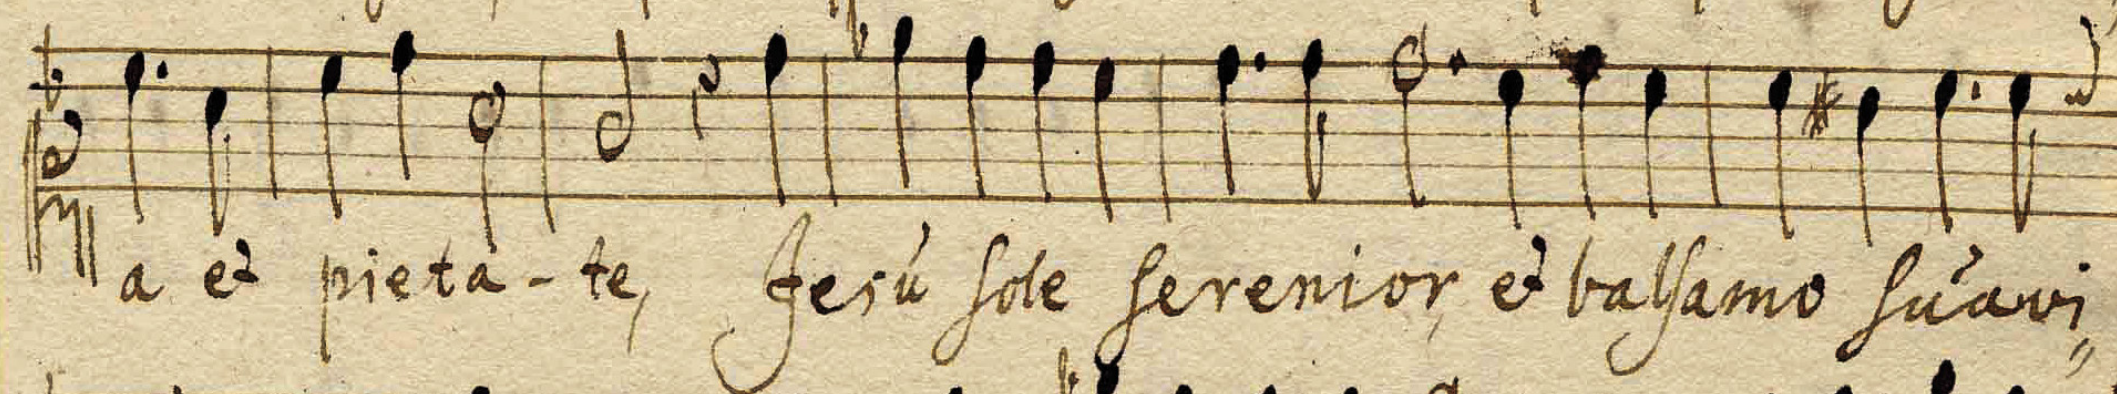 a et pieta-te, Jesù sole serenior, et balsamo sùavi„